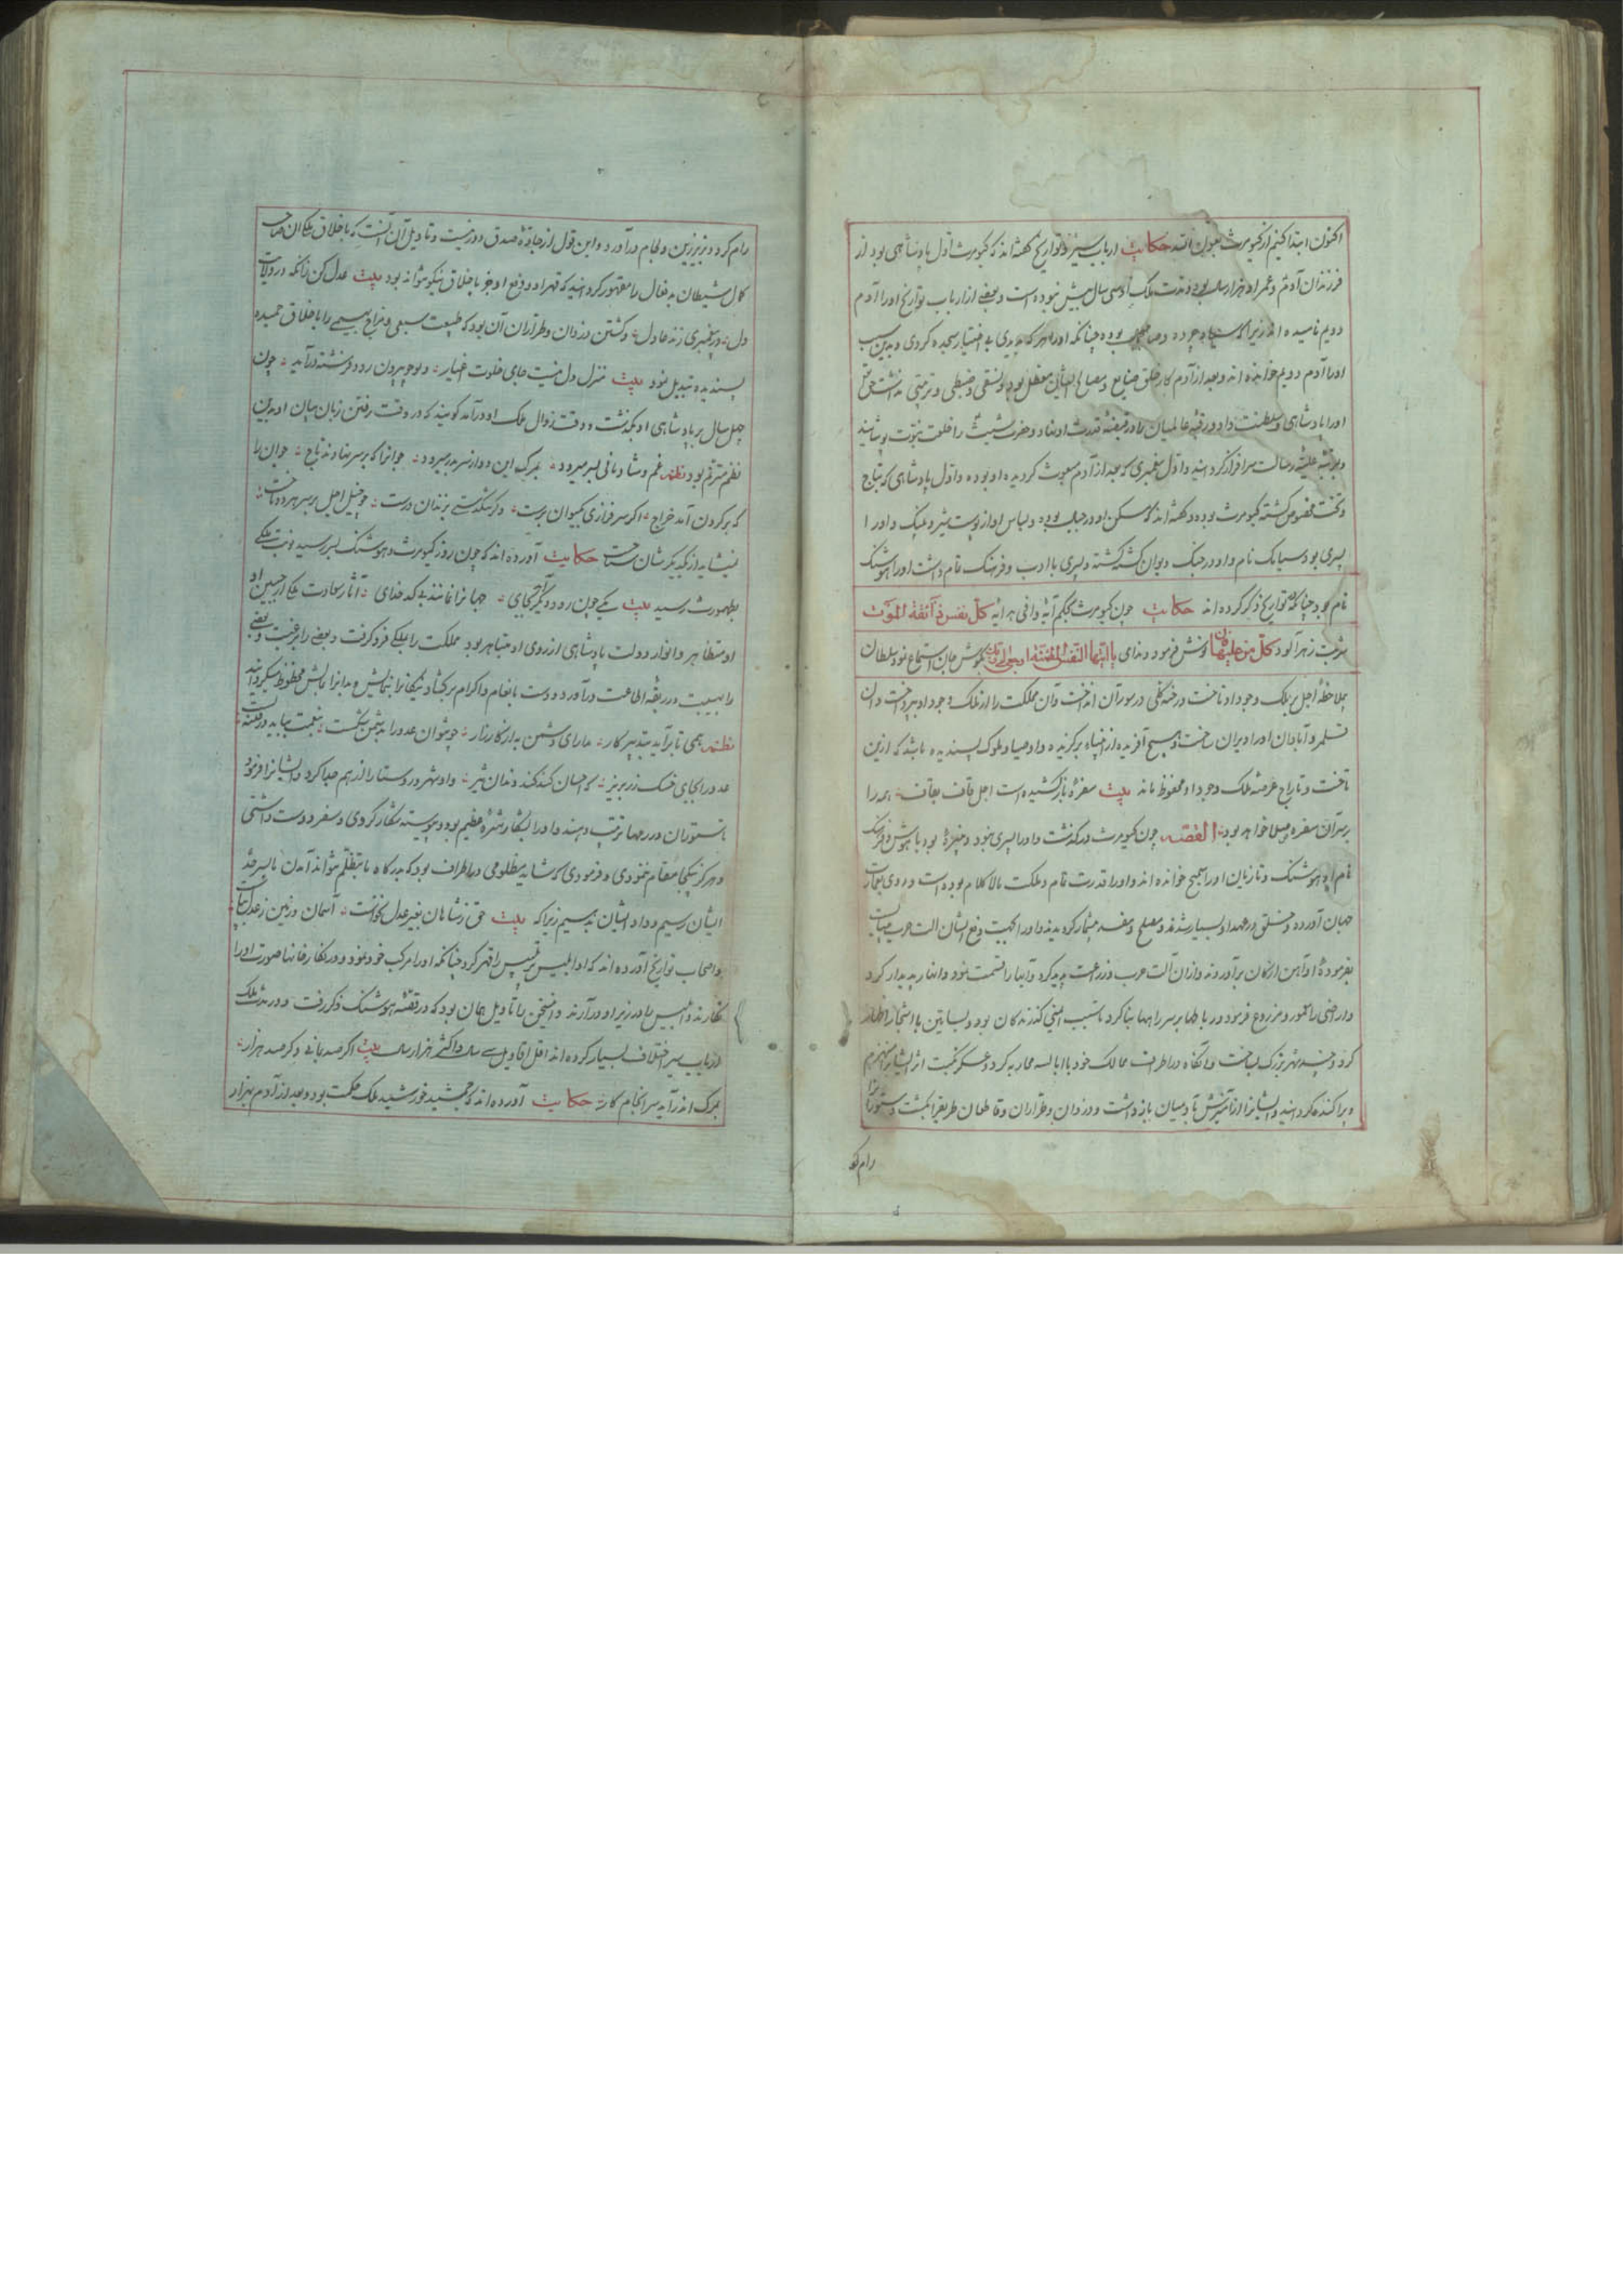 اکنون ابتدا کنیم از کیومرث بعون الله حکایت ارباب سیر و تواریخ گفته اند که کیومرث اول پادشاهی بود از
فرزندان آدم و عمر او هزار سال بوده و مدت ملک او سی سال بیش نبوده است و بعضی از ارباب تواریخ او را آدم
دویم نامیده اند زیرا که بوده چنانکه او را هر که بدیدی بی اختیار سجده کردی و بدین سبب
او را آدم دویم خوانده اند و بعد از آدم کار خلق ضایع و مصالح ایشان معطل بود و نسقی و ضبطی و ترتیبی نداشت حق تعالی
او را پادشاهی و سلطنت داد و رقبه عالمیان را در قبضه قدرت او نهاد و حضرت شیث را خلعت نبوت پوشانید
و برتبه علیه رسالت سرافراز گردانید و اول پیغمبری که بعد از آدم مبعوث گردیده او بوده و اول پادشاهی که بتاج
و تخت مخصوص گشته کیومرث بوده و گفته اند که مسکن او در جبال بوده و لباس او از پوست شیر و پلنگ و او را
پسری بود سیامک نام و او در جنگ دیوان کشته گشته و پسری با ادب و فرهنگ تمام داشت او را هوشنگ
نام بود چنانکه در تواریخ ذکر کرده اند حکایت چون کیومرث بحکم آیه وافی هدایه کل نفس ذائقة الموت
شربت زهرآلود کل من علیها فان نوش فرمود و ندای یا ایتها النفس المطمئنة ارجعی الی ربک بگوش جان استماع نمود سلطان
بملاحظه اجل بر ملک وجود او تاخت و رخنه کلی در سور آن انداخت و آن مملکت را از ملک وجود او بپرداخت و آن
قلمرو آبادان او را ویران ساخت و هیچ آفریده از انبیاء برگزیده و اوصیا و ملوک پسندیده نباشد که ازین
تاخت و تاراج عرصه ملک وجود او محفوظ ماند بیت سفره باز کشیده است اجل قاف بقاف همه را
بر سر آن سفره صلا خواهد بود القصه چون کیومرث درگذشت و او را پسری نبود و نبیره بود با هوش و فرهنگ
نام او هوشنگ و تازیان او را خوانده اند و او را قدرت تمام و ملکت مالاکلام بوده است و روی بعمارت
جهان آورده و خلق در عهد او بسیار شدند و مصلح و مفسد بیشمار گردیدند و او را بجهت دفع ایشان آلت حرب میبایست
بفرموده او آهن از کان برآوردند و از آن آلت حرب و زراعت پدید کرد و آبها را قسمت نمود و انهار پدیدار کرد
و اراضی را معمور و مزروع فرمود و رباطها بر سر راهها بنا کرد تا سبب ایمنی گذرندگان بود و بساتین با اشجار
کرد و چند شهر بزرگ بساخت و آنگاه در اطراف ممالک خود با ابالسه محاربه کرد و عسکر نکبت اثر ایشان منهزم
و پراکنده گردانید و ایشان را از آمیزش آدمیان بازداشت و دزدان و طراران و قاطعان طریق را بکشت و ستوران را
رام کرد
رام کرد و بزیر زین و لجام درآورد و این قول از جاده صدق دور نیست و تاویل آن آنست که باخلاق ملکان صاحب
کمال شیطان بدفعال را مقهور گردانید که قهر او و دفع او جز باخلاق نیکو نتواند بود بیت عدل کن زانکه در ولایت
دل در پیغمبری زند عادل و کشتن دزدان و طراران آن بود که طبیعت سبعی و مزاج بهیمی را باخلاق حمیده
پسندیده تبدیل نمود بیت منزل دل نیست جای خلوت اغیار دیو چو بیرون رود فرشته درآید چون
چهل سال بر پادشاهی او بگذشت و وقت زوال ملک او درآمد گویند که در وقت رفتن زبان بیان او بدین
نظم مترنم بود نظم غم و شادمانی بسر میرود بمرگ این دو از سر بدر میرود چو آنرا که بر سر نهادند تاج چو آن را
که بر گردن آمد خراج اگر سرفرازی بکیوان برست وگر تنگدستی بزندان درست چو خیل اجل بر سر هر دو تاخت
نمیشاید از یکدیگرشان شناخت حکایت آورده اند که چون روز کیومرث و هوشنگ بسر رسید نوبت ملک
بطهمورث رسید بیت یکی چون رود دیگر آید بجای جهان را نمانند بی کدخدای آثار سعادت ملک از جبین او
او متظاهر و انوار دولت پادشاهی از روی او متباهر بود مملکت را بملک فرو گرفت و بعضی را برغبت و بعضی
را بهیبت در ربقه اطاعت درآورد و دست بانعام و اکرام برگشاد نیکان را بنمایش و بدان را بمالش محظوظ میگردانید
نظم همی تا برآید بتدبیر کار مدارای دشمن به از کارزار چو نتوان عدو را بدشمن شکست بنعمت بباید در فتنه بست
عدو را بجای خسک زر بریز که احسان کند کند دندان تیز و او شهر و روستا را از هم جدا کرد و ایشان را فرمود
تا ستوران در رمها ترتیب دهند و او را بشکار شره عظیم بود و پیوسته شکار کردی و سفر دوست داشتی
و هرگز بیکجا مقام ننمودی و فرمودی که شاید مظلومی در اطراف بود که بدرگاه ما بتظلم نتواند آمدن ما بسر حد
ایشان رسیم و داد ایشان بدهیم زیرا که بیت حق ز شاهان بغیر عدل نخواست آسمان و زمین ز عدل بپاست
و اصحاب تواریخ آورده اند که او ابلیس پر تلبیس را قهر کرد چنانکه او را مرکب خود نمود و در نگارخانها صورت او را
نگارند و ابلیس را در زیر او درآرند و این سخن را تاویل همان بود که در قصه هوشنگ ذکر رفت و در مدت ملک
ارباب سیر اختلاف بسیار کرده اند اقل اقاویل سی سال و اکثر هزار سال بیت اگر صد بمانی و گر صد هزار
بمرگ اندر آید سرانجام کار حکایت آورده اند که جمشید خورشید ملک حکمت بود و بعد از آدم بهزار